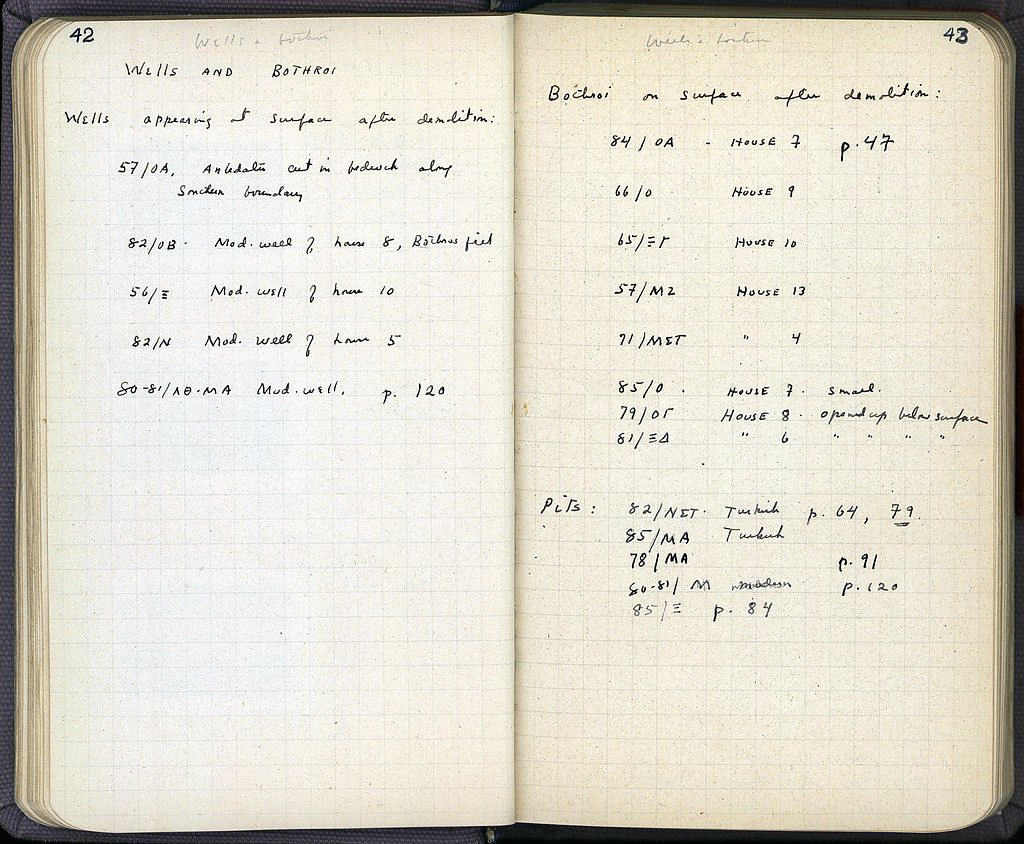 42
Wells & bothroi
WELLS AND BOTHROI
Wells appearing at surface after demolition:
57/ΟΑ. Antedates cut in bedrock along
Southern boundary
82/ΟΒ. Mod. well of house 8, Bothros field
56/Ξ Mod. well of house 10
82/Ν Mod. well of house 5
80-81/ΛΘ-ΜΑ Mod. well. p. 120
43
Wells & bothroi
Bothroi on surface after demolition:
84/ΟΑ - HOUSE 7 p. 47
66/Ο HOUSE 9
65/ΞΓ HOUSE 10
57/ΜΖ HOUSE 13
71/ΜΣΤ " 4
85/Ο. HOUSE 7. small.
79/ΟΓ HOUSE 8. opened up below surface
81/ΞΔ " 6 " " " "
Pits: 82/ΝΣΤ. Turkish p. 64, 79.
85/ΜΑ Turkish
78/ΜΑ p. 91
80-81/Μ modern p. 120
85/Ξ p. 84